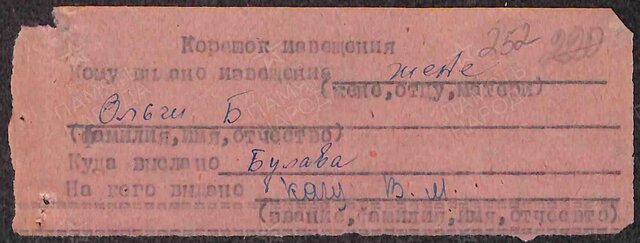 Корешок извещения 252 220
Кому выдано извещение жене
(жене,отцу,матери)
Ольги Б
(фамилия,имя,отчество)
Куда выслано Булава
На кого выдано Кац В.М.
(звание,фамилия,имя,отчество)